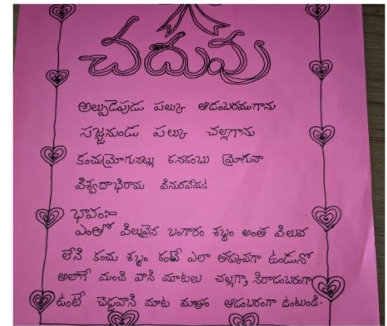 చదువు
అల్పుడెపుడు పల్కు ఆడంబరముగాను
సజ్జనుండు పల్కు చల్లగాను
కంచుమ్రోగునట్లు కనకంబు మ్రోగునా
విశ్వదాభిరామ వినురవేమ!
భావం:-
ఎంతో విలువైన బంగారం శబ్దం అంత విలువ
లేని కంచు శబ్దం కంటే ఎలా తక్కువగా ఉండునో
అలాగే మంచి వాని మాటలు చల్లగా, నిరాడంబరంగా
ఉంటే చెడ్డవాని మాట మాత్రం ఆడంబరంగా ఉంటుంది.